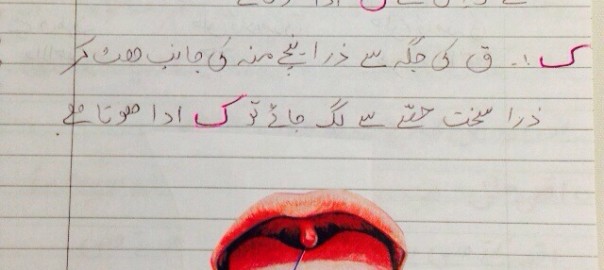 ق ادا ہوتا ہے
ک:- ق کی جگہ سے ذرا نیچے منہ کی جانب ھٹ کر
ذرا سخت حصّے سے لگ جائے تو ک ادا ھوتا ہے۔